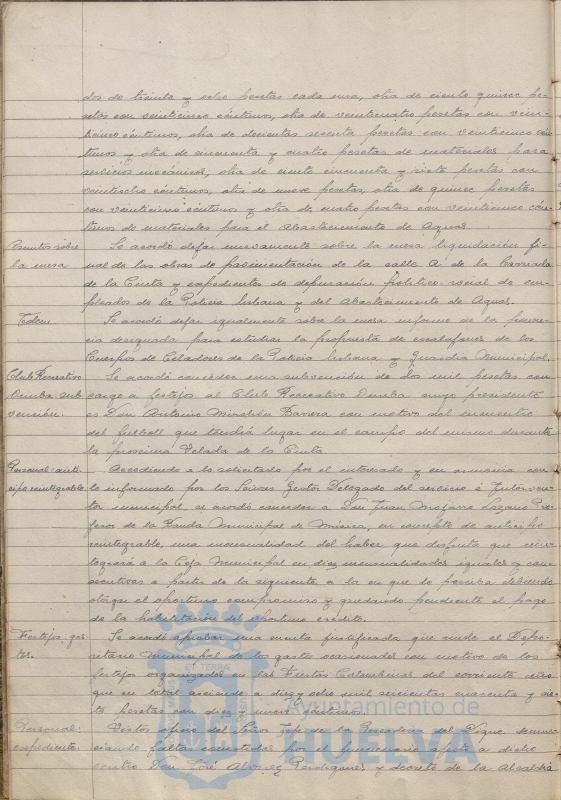 dos de treinta y ocho pesetas cada una, otra de ciento quince pe-
setas con veinticinco céntimos, otra de veinticuatro pesetas con vein-
ticinco céntimos, otra de doscientas sesenta pesetas con veinticinco cén-
timos y otra de cincuenta y cuatro pesetas de materiales para
servicios mecánicos, otra de ciento cincuenta y siete pesetas con
veintiocho céntimos, otra de nueve pesetas, otra de quince pesetas
con veinticinco céntimos y otra de cuatro pesetas con veinticinco cén-
timos de materiales para el Abastecimiento de Aguas.
Asuntos sobre
la mesa
Se acordó dejar nuevamente sobre la mesa liquidación fi-
nal de las obras de pavimentación de la calle A de la Barriada
de la Cinta y expedientes de depuración político-social de em-
pleados de la Policía Urbana y del Abastecimiento de Aguas.
Idem.
Se acordó dejar igualmente sobre la mesa informe de la ponen-
cia designada para estudiar la propuesta de escalafones de los
Cuerpos de Celadores de la Policía Urbana y Guardia Municipal.
Club Recreativo
Onuba sub-
vención.
Se acordó conceder una subvención de dos mil pesetas con
cargo a festejos al Club Recreativo Onuba cuyo presidente
es Don Antonio Barrera con motivo del encuentro
del futboll que tendrá lugar en el campo del mismo durante
la próxima Velada de la Cinta.
Personal: anti-
cipo reintegrable
Accediendo a lo solicitado por el interesado y en armonía con
lo informado por los Señores Gestor Delegado del servicio é Interven-
tor municipal, se acordó conceder a Don Juan Lozano Pro-
fesor de la Banda Municipal de Música, en concepto de anticipo
reintegrable, una mensualidad del haber que disfruta que rein-
tegrará a la Caja Municipal en diez mensualidades iguales y con-
secutivas a partir de la siguiente a la en que lo perciba debiendo
otorgar el oportuno compromiso y quedando pendiente el pago
de la habilitación del oportuno crédito.
Festejos: gas-
tos.
Se acordó aprobar una cuenta justificada que rinde el Depo-
sitario Municipal de los gastos ocasionados con motivo de los
festejos organizados en las Fiestas Colombinas del corriente año
que en total asciende a diez y ocho mil seiscientas cuarenta y sie-
te pesetas con diez y nueve céntimos.
Personal:
expediente
Visto oficio del Señor Jefe de la Pescadería del Dique denun-
ciando faltas cometidas por el funcionario afecto a dicho
centro Don José Alvarez Perdigones y decreto de la Alcaldía
ET TERRAE
Ayuntamiento de
HUELVA